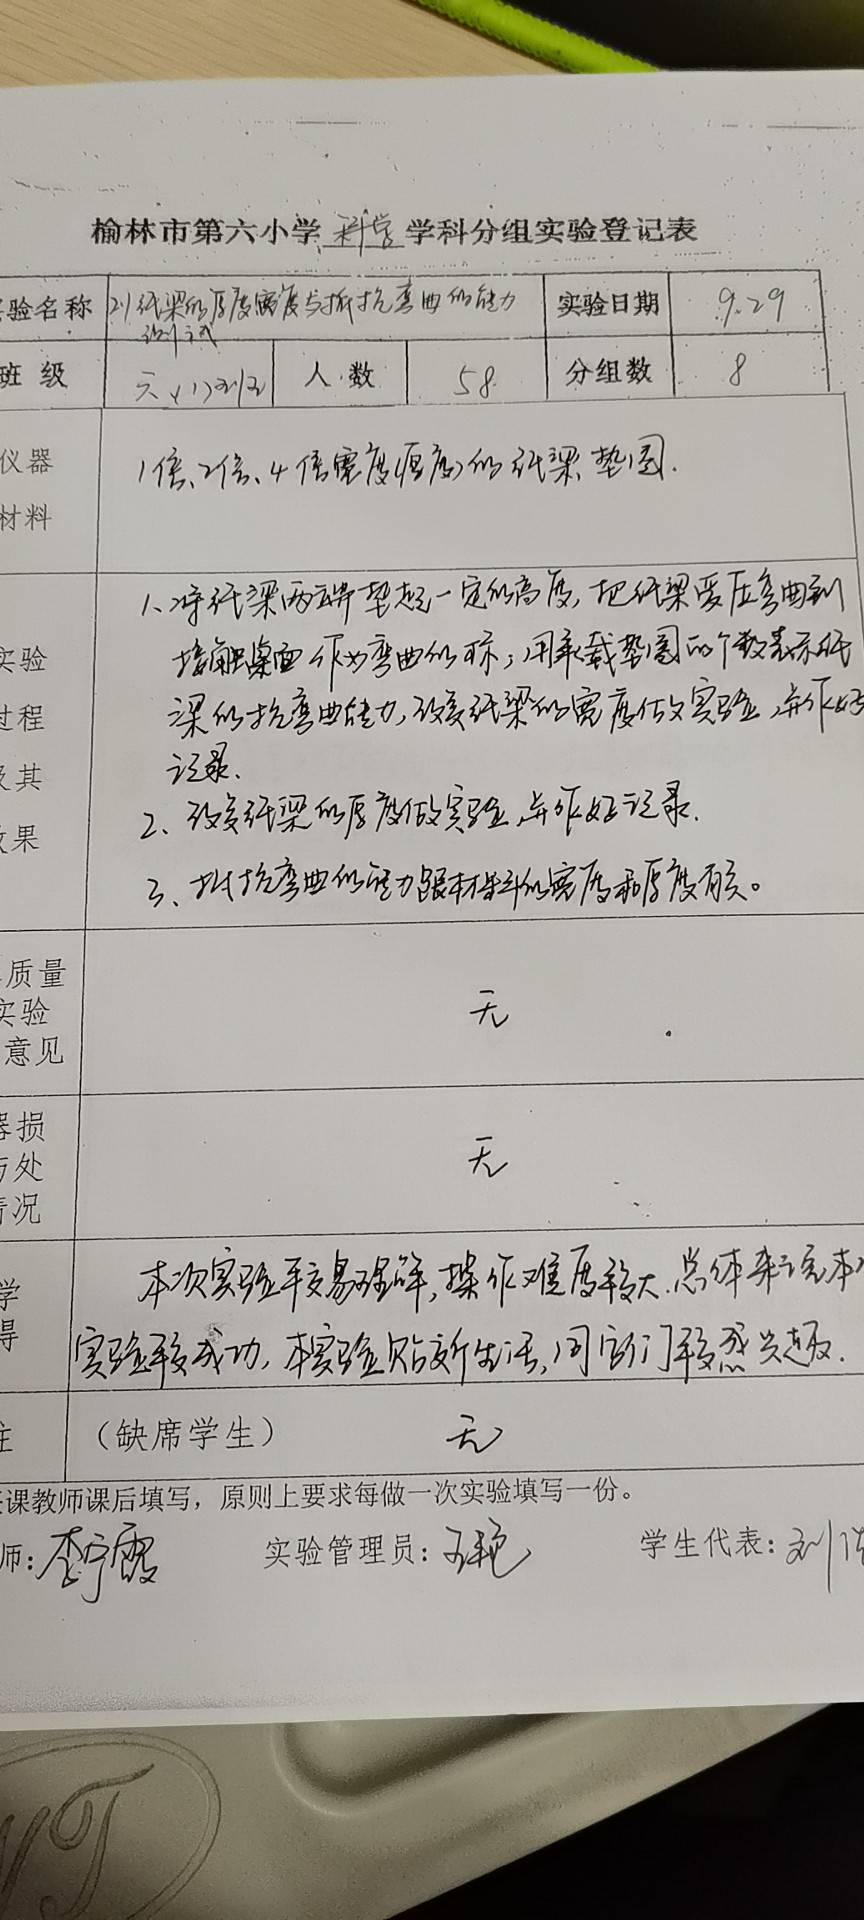 榆林市第六小学 科学 学科分组实验登记表
验名称 对纸梁的厚度宽度与抵抗弯曲的能力 实验日期 9.29
测试
班 级 六(1)班 人 数 58 分组数 8
仪器 1倍、2倍、4倍宽度(厚度)的纸梁,垫圈.
材料
1、将纸梁两端垫起一定的高度,把纸梁受压弯曲到
实验 接触桌面作为弯曲的标;用承载垫圈的个数表示纸
过程 梁的抗弯曲能力,改变纸梁的宽度做实验,并作好
及其 记录.
效果 2、改变纸梁的厚度做实验,并作好记录.
3、抵抗弯曲的能力跟材料的宽度和厚度有关。
质量
实验 无
意见
器损
与处 无
情况
学 本次实验较易理解,操作难度较大.总体来说本
得 实验较成功,本实验贴近生活,同学们较感兴趣.
注 (缺席学生) 无
课教师课后填写,原则上要求每做一次实验填写一份。
师:李宁霞 实验管理员:王艳 学生代表:刘